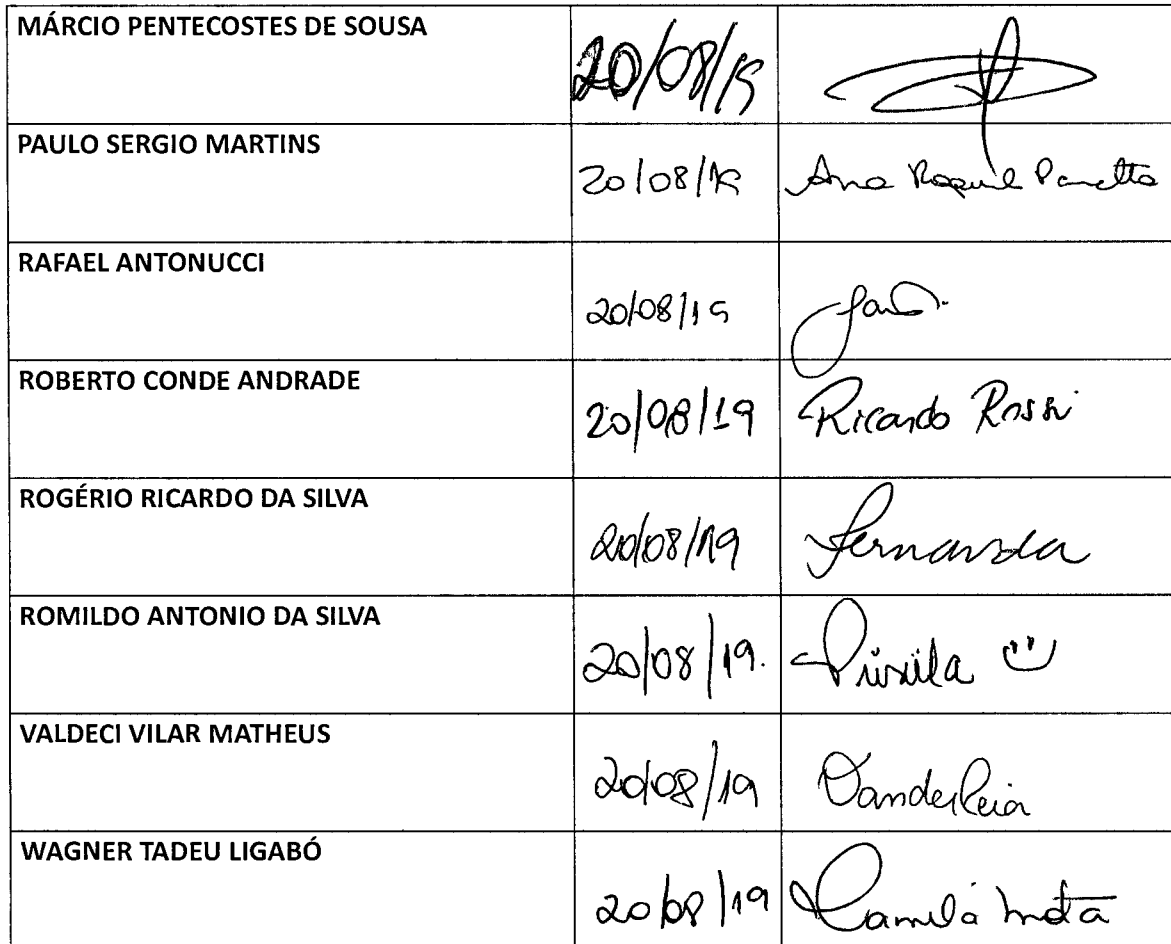 MÁRCIO PENTECOSTES DE SOUSA 20/08/19
PAULO SERGIO MARTINS 20/08/19 Ana Raquel
RAFAEL ANTONUCCI 20/08/19
ROBERTO CONDE ANDRADE 20/08/19 Ricardo Rossi
ROGÉRIO RICARDO DA SILVA 20/08/19 Fernanda
ROMILDO ANTONIO DA SILVA 20/08/19. Priscila
VALDECI VILAR MATHEUS 20/08/19 Vanderleia
WAGNER TADEU LIGABÓ 20/08/19 Camila Mota